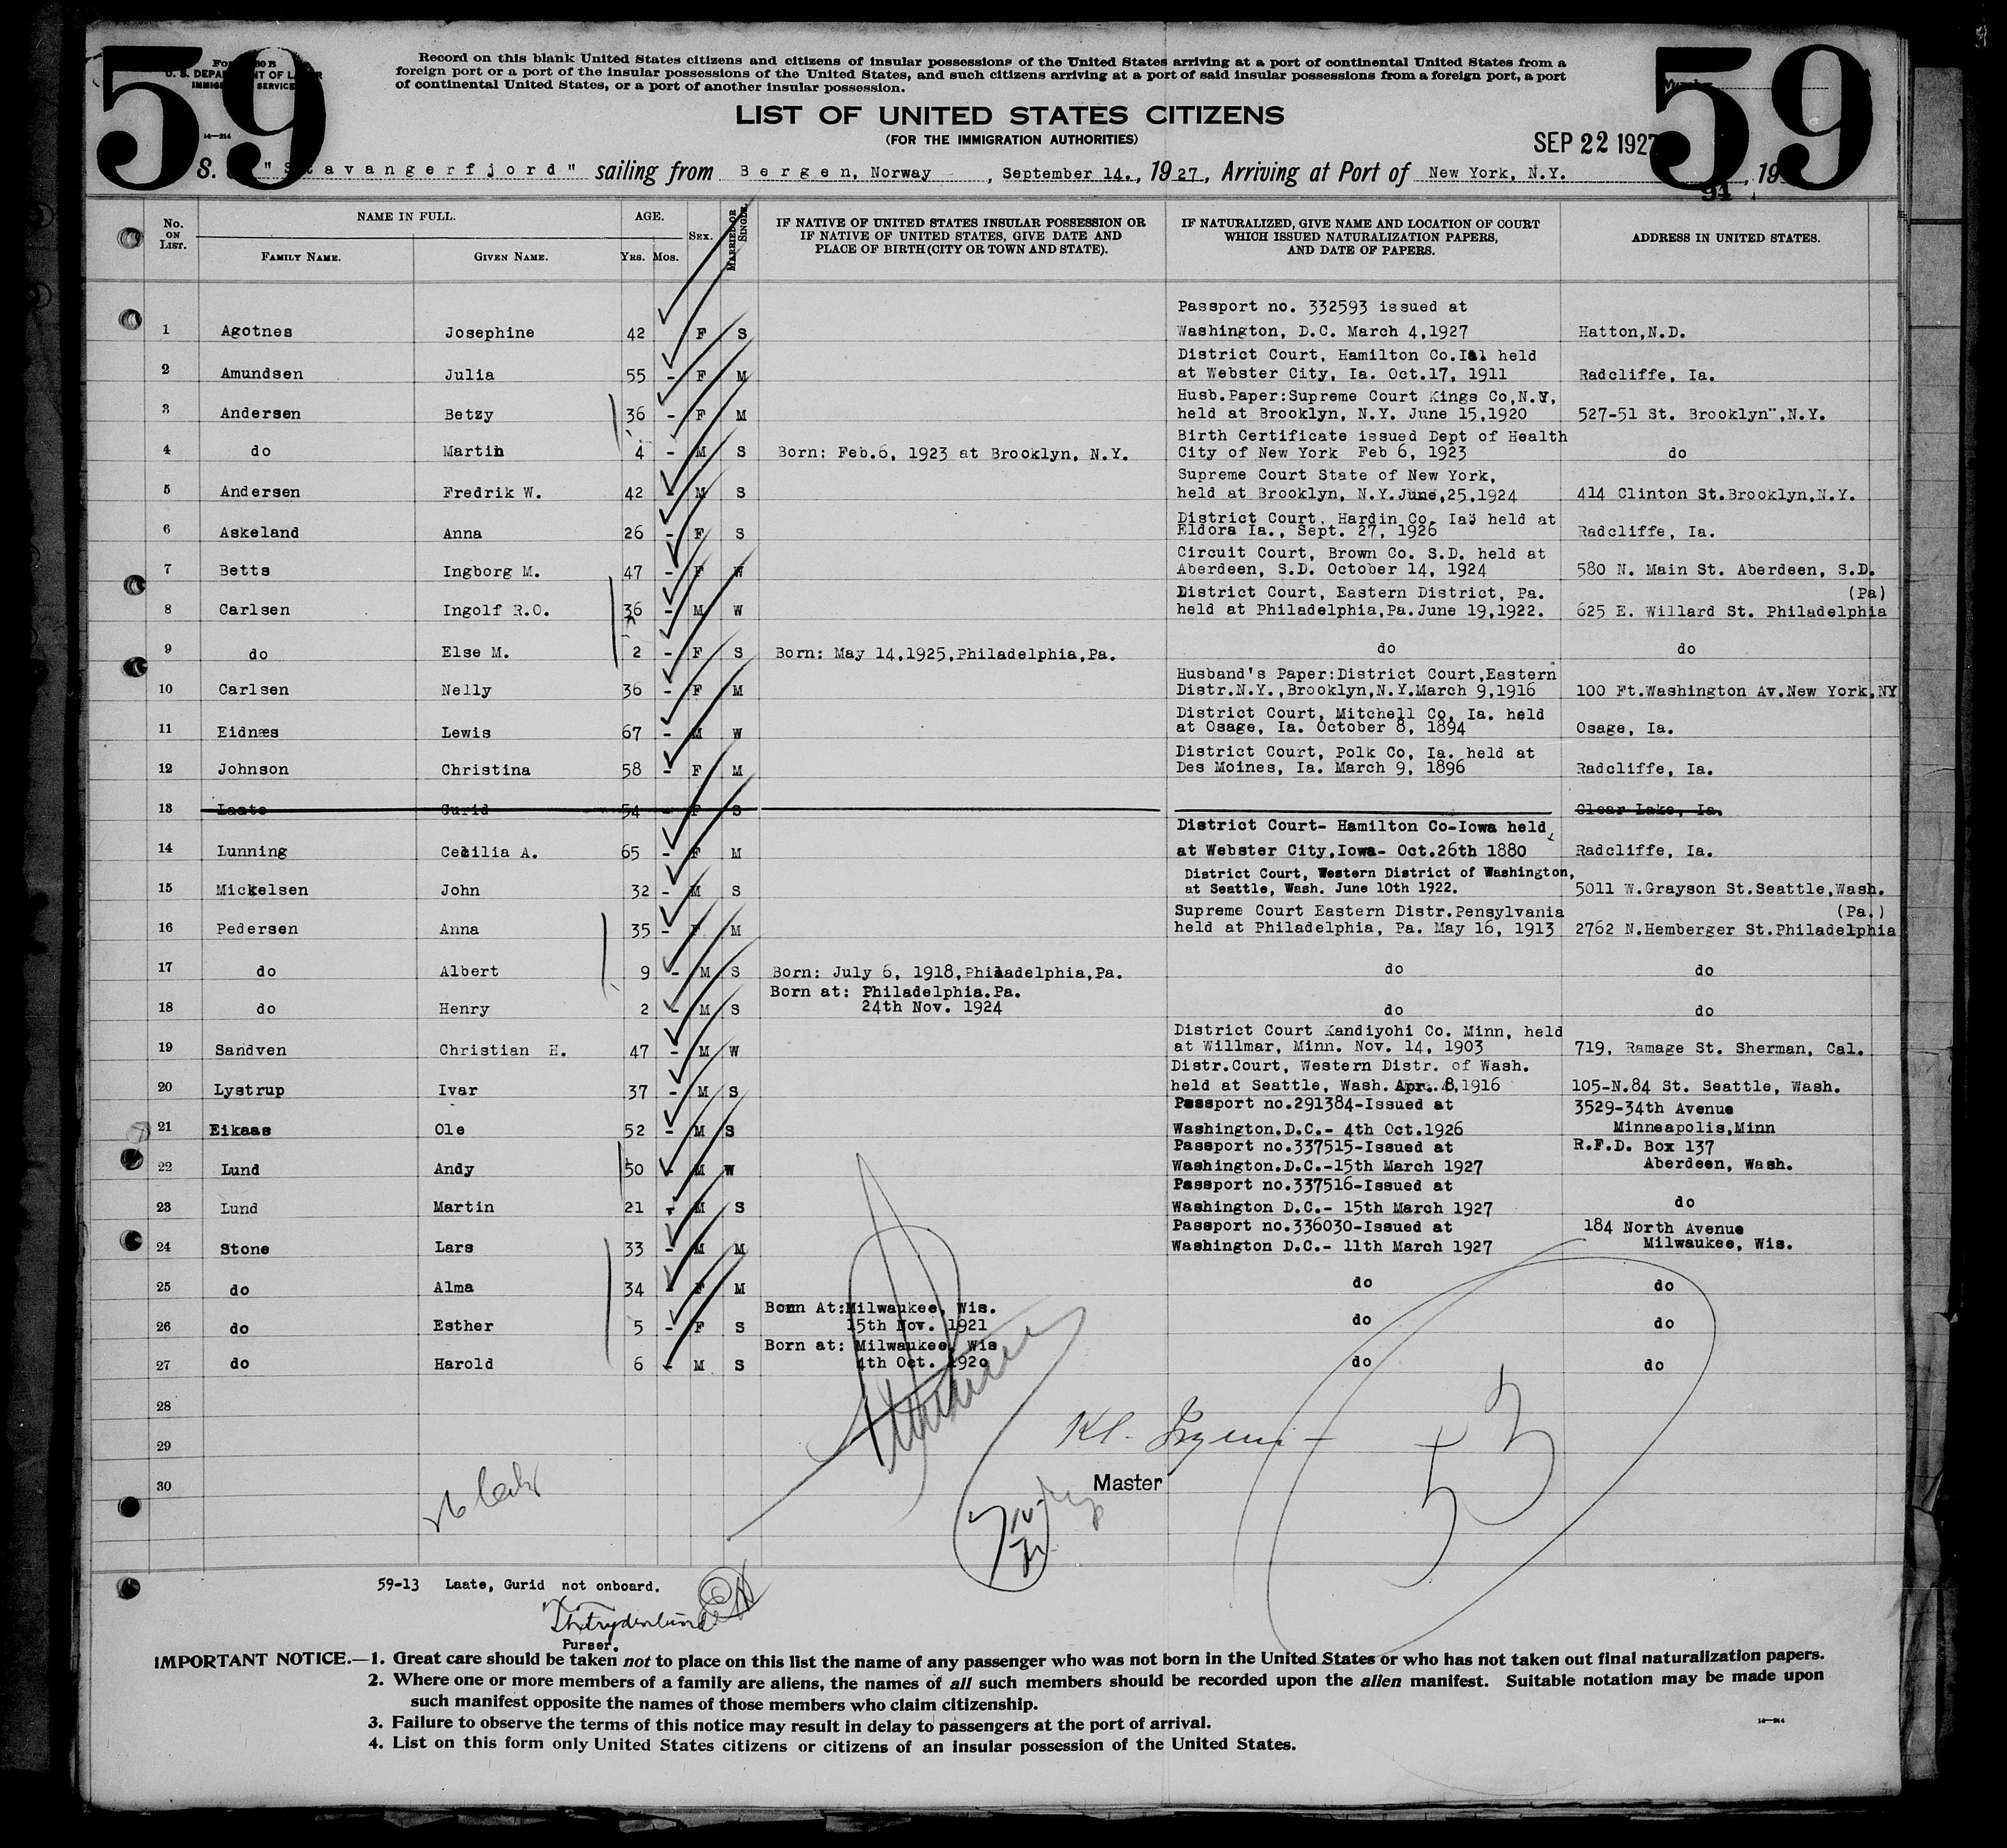 59
59
Record on this blank United States citizens and citizens of insular possessions of the United States arriving at a port of continental United States from a
foreign port or a port of the insular possessions of the United States, and such citizens arriving at a port of said insular possessions from a foreign port, a port
of continental United States, or a port of another insular possession.
LIST OF UNITED STATES CITIZENS
(FOR THE IMMIGRATION AUTHORITIES)
SEP 22 1927
S. "Stavangerfjord" sailing from Bergen, Norway, September 14., 1927, Arriving at Port of New York, N.Y. , 19
No. ON LIST. NAME IN FULL. FAMILY NAME. GIVEN NAME. AGE. YRS. MOS. SEX. MARRIED OR SINGLE. IF NATIVE OF UNITED STATES INSULAR POSSESSION OR IF NATIVE OF UNITED STATES, GIVE DATE AND PLACE OF BIRTH (CITY OR TOWN AND STATE). IF NATURALIZED, GIVE NAME AND LOCATION OF COURT WHICH ISSUED NATURALIZATION PAPERS, AND DATE OF PAPERS. ADDRESS IN UNITED STATES.
Passport no. 332593 issued at
1 Agotnes Josephine 42 F S Washington, D.C. March 4,1927 Hatton,N.D.
District Court, Hamilton Co. held
2 Amundsen Julia 55 - F M at Webster City, Ia. Oct.17, 1911 Radcliffe, Ia.
Husb.Paper:Supreme Court Kings Co,N.Y,
3 Andersen Betzy 36 - F M held at Brooklyn, N.Y. June 15,1920 527-51 St. Brooklyn",N.Y.
Birth Certificate issued Dept of Health
4 do Martin 4 - M S Born: Feb.6, 1923 at Brooklyn, N.Y. City of New York Feb 6, 1923 do
Supreme Court State of New York,
5 Andersen Fredrik W. 42 - M S held at Brooklyn, N.Y.June,25,1924 414 Clinton St.Brooklyn,N.Y.
District Court, Hardin Co. Ia. held at
6 Askeland Anna 26 - F S Eldora Ia., Sept. 27, 1926 Radcliffe, Ia.
Circuit Court, Brown Co. S.D. held at
7 Betts Ingborg M. 47 - F W Aberdeen, S.D. October 14, 1924 580 N. Main St. Aberdeen, S.D.
District Court, Eastern District, Pa. (Pa)
8 Carlsen Ingolf R.O. 36 - M W held at Philadelphia,Pa.June 19,1922. 625 E. Willard St. Philadelphia
9 do Else M. 2 - F S Born: May 14,1925,Philadelphia,Pa. do do
Husband's Paper:District Court,Eastern
10 Carlsen Nelly 36 - F M Distr.N.Y.,Brooklyn,N.Y.March 9,1916 100 Ft.Washington Av.New York,NY
District Court, Mitchell Co, Ia. held
11 Eidnæs Lewis 67 - M W at Osage, Ia. October 8, 1894 Osage, Ia.
District Court, Polk Co, Ia. held at
12 Johnson Christina 58 - F M Des Moines, Ia. March 9, 1896 Radcliffe, Ia.
13 Laate Gurid 54 - F S Clear Lake, Ia.
District Court- Hamilton Co-Iowa held
14 Lunning Cecilia A. 65 - F M at Webster City,Iowa- Oct.26th 1880 Radcliffe, Ia.
District Court, Western District of Washington,
15 Mickelsen John 32 - M S at Seattle, Wash. June 10th 1922. 5011 W.Grayson St.Seattle,Wash.
Supreme Court Eastern Distr.Pensylvania (Pa.)
16 Pedersen Anna 35 - F M held at Philadelphia, Pa. May 16, 1913 2762 N.Hemberger St.Philadelphia
17 do Albert 9 - M S Born: July 6, 1918,Philadelphia,Pa. do do
Born at: Philadelphia.Pa.
18 do Henry 2 - M S 24th Nov. 1924 do do
District Court Kandiyohi Co. Minn, held
19 Sandven Christian H. 47 - M W at Willmar, Minn. Nov. 14, 1903 719, Ramage St. Sherman, Cal.
Distr.Court, Western Distr. of Wash.
20 Lystrup Ivar 37 - M S held at Seattle, Wash. Apr. 8,1916 105-N.84 St. Seattle, Wash.
Passport no.291384-Issued at 3529-34th Avenue
21 Eikaas Ole 52 - M S Washington.D.C.- 4th Oct.1926 Minneapolis,Minn
Passport no.337515-Issued at R.F.D. Box 137
22 Lund Andy 50 - M W Washington.D.C.-15th March 1927 Aberdeen, Wash.
Passport no.337516-Issued at
23 Lund Martin 21 - M S Washington D.C.- 15th March 1927 do
Passport no.336030-Issued at 184 North Avenue
24 Stone Lars 33 - M M Washington D.C.- 11th March 1927 Milwaukee, Wis.
25 do Alma 34 - F M do do
Born At:Milwaukee, Wis.
26 do Esther 5 - F S 15th Nov. 1921 do do
Born at: Milwaukee, Wis
27 do Harold 6 - M S 4th Oct. 1920 do do
28
29
30
Master
53
59-13 Laate, Gurid not onboard.
Purser.
IMPORTANT NOTICE.—1. Great care should be taken not to place on this list the name of any passenger who was not born in the United States or who has not taken out final naturalization papers.
2. Where one or more members of a family are aliens, the names of all such members should be recorded upon the alien manifest. Suitable notation may be made upon
such manifest opposite the names of those members who claim citizenship.
3. Failure to observe the terms of this notice may result in delay to passengers at the port of arrival.
4. List on this form only United States citizens or citizens of an insular possession of the United States.